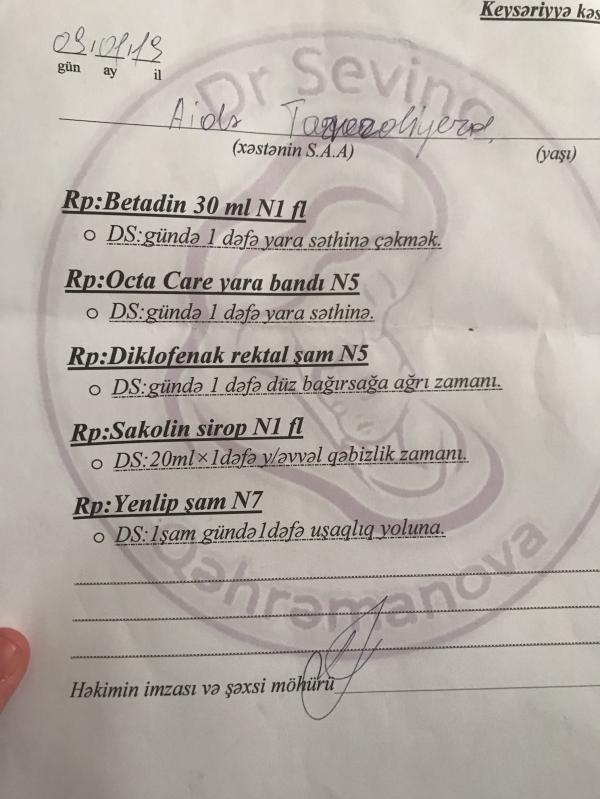 Keysəriyyə kəs
09.01.19
gün ay il
Aida
(xəstənin S.A.A) (yaşı)
Dr Sevinc
Rp:Betadin 30 ml N1 fl
DS:gündə 1 dəfə yara səthinə çəkmək.
Rp:Octa Care yara bandı N5
DS:gündə 1 dəfə yara səthinə.
Rp:Diklofenak rektal şam N5
DS:gündə 1 dəfə düz bağırsağa ağrı zamanı.
Rp:Sakolin sirop N1 fl
DS:20ml×1dəfə y/əvvəl qəbizlik zamanı.
Rp:Yenlip şam N7
DS:1şam gündə1dəfə uşaqlıq yoluna.
Qəhrəmanova
Həkimin imzası və şəxsi möhürü